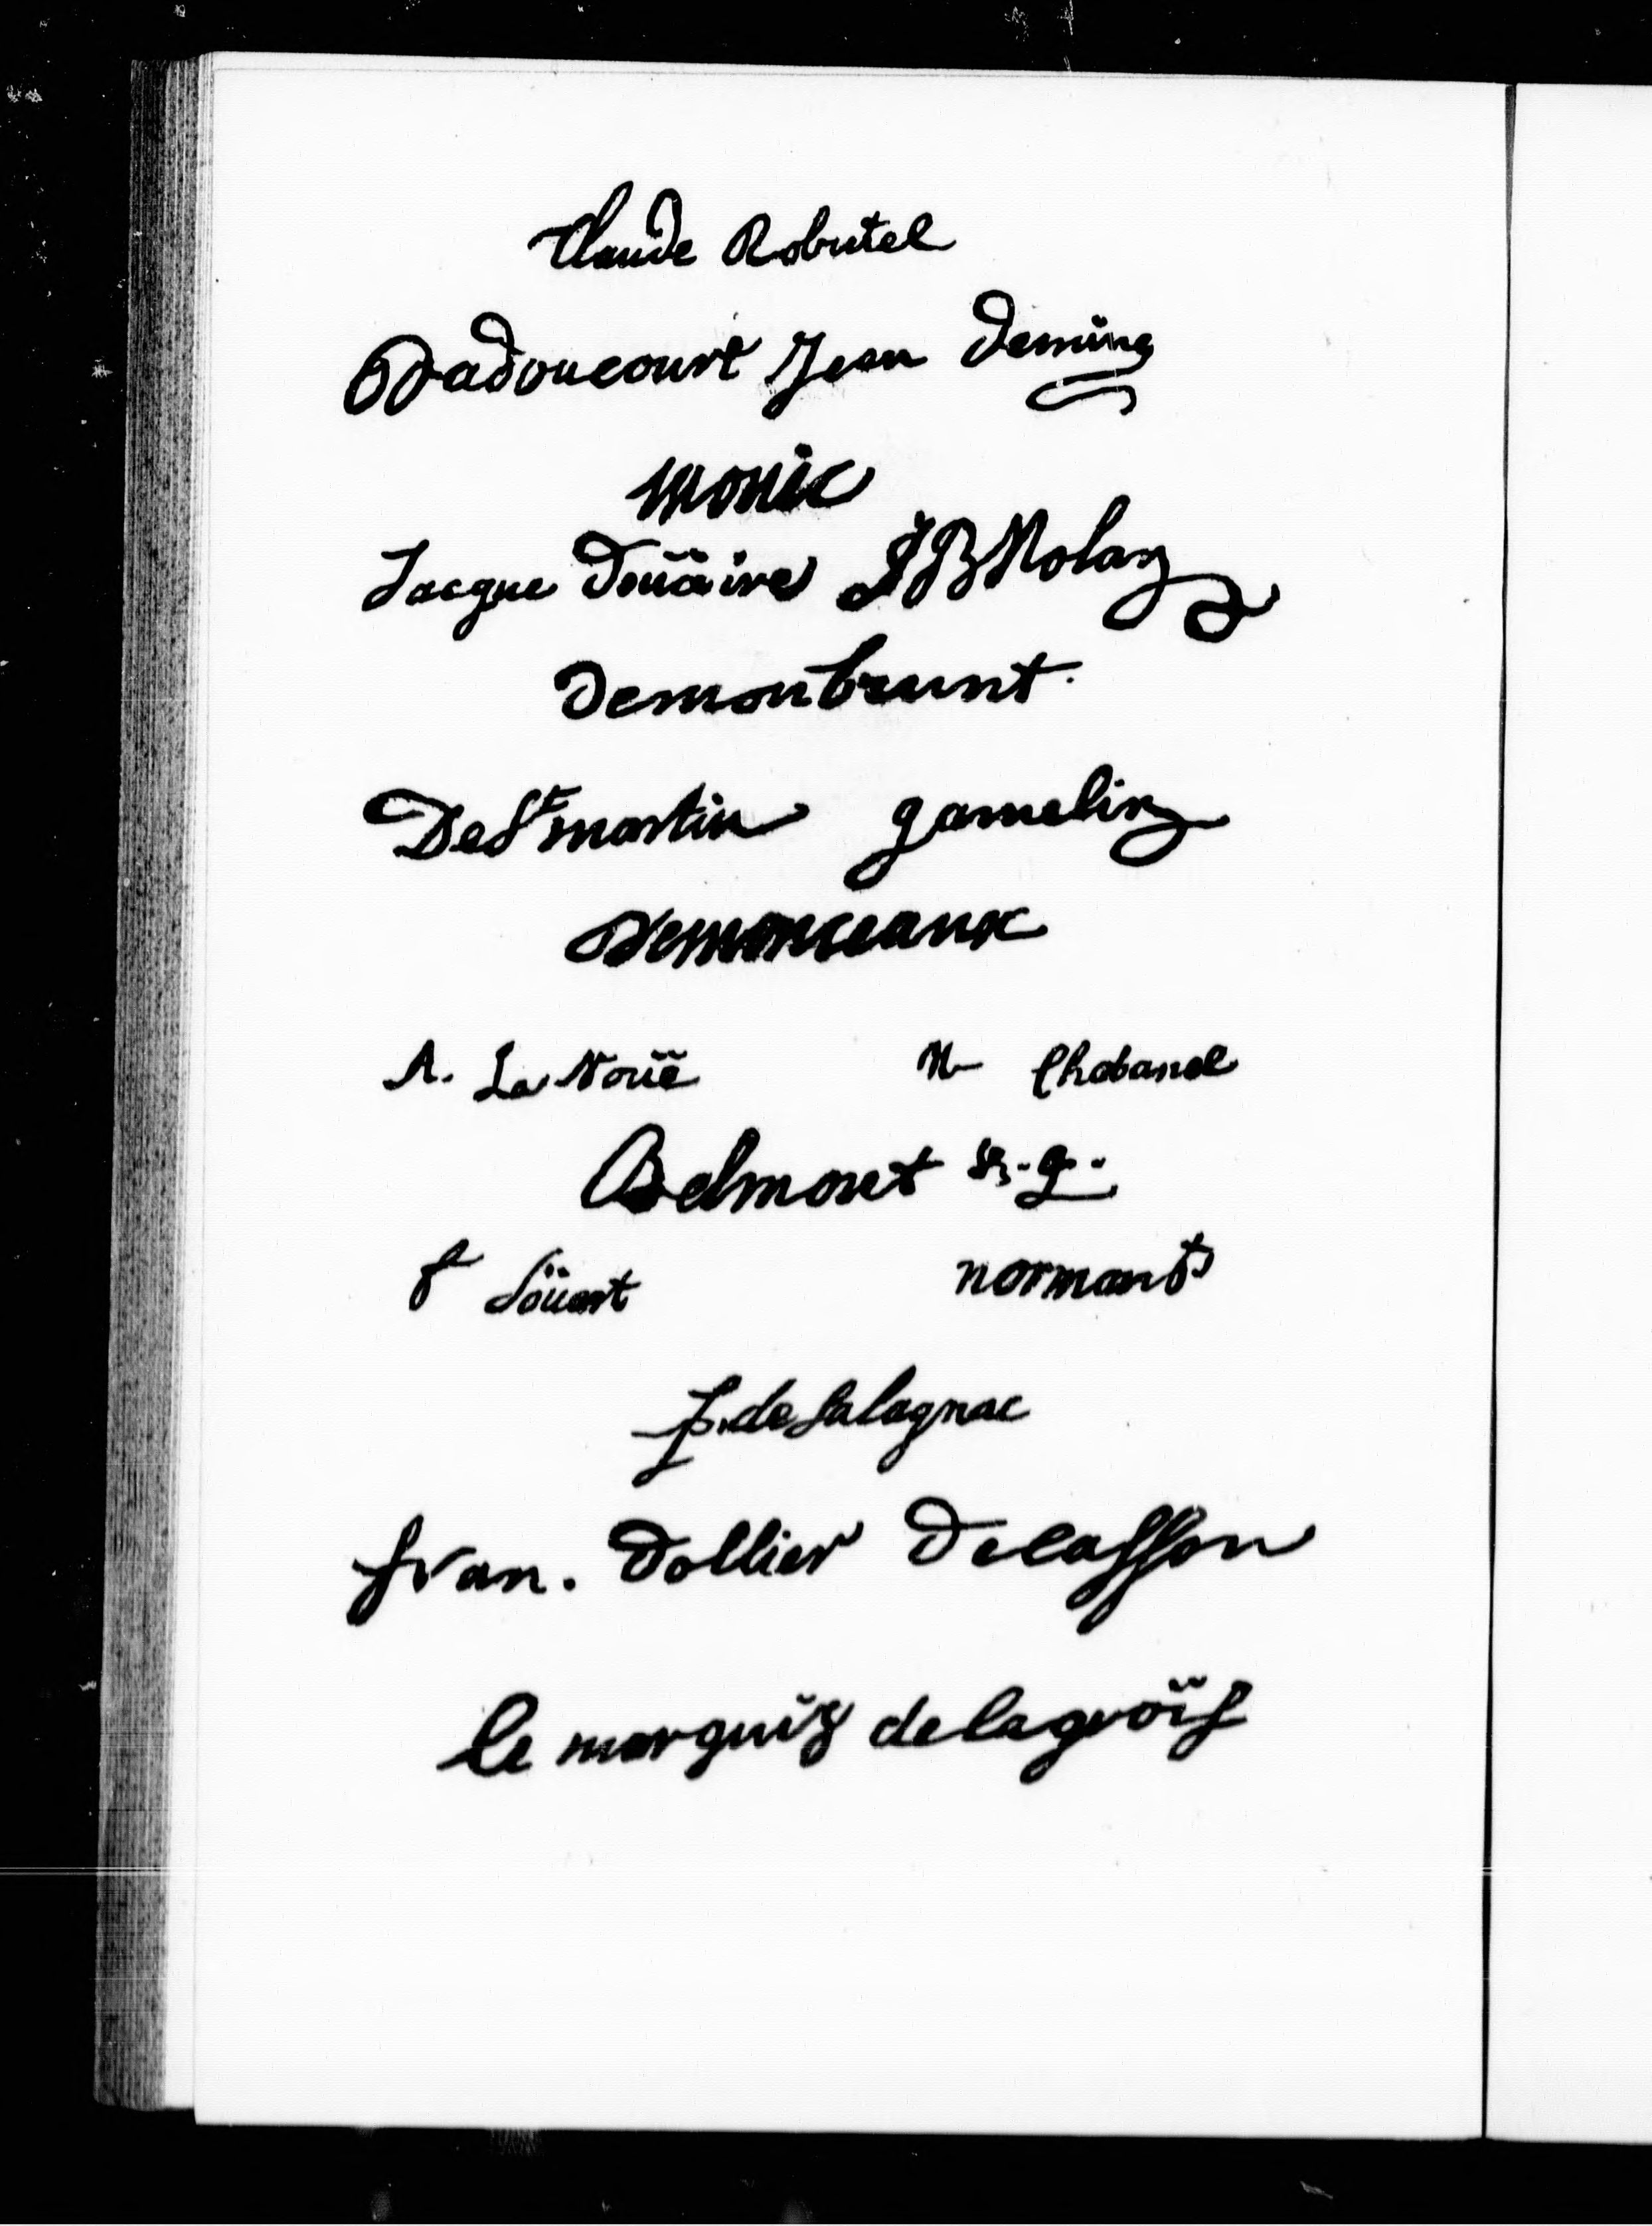 Claude Robutel
Dadoucourt Jean Deming
monic
Jacque Doüaire JBNolan
Demonbrunt.
De St martin gamelin
Demonceaux
A. La Noüe M Chabanel
Belmont
G Soüart normant
f. de Salagnac
fran. Dollier Decasson
le marquis delagroïs